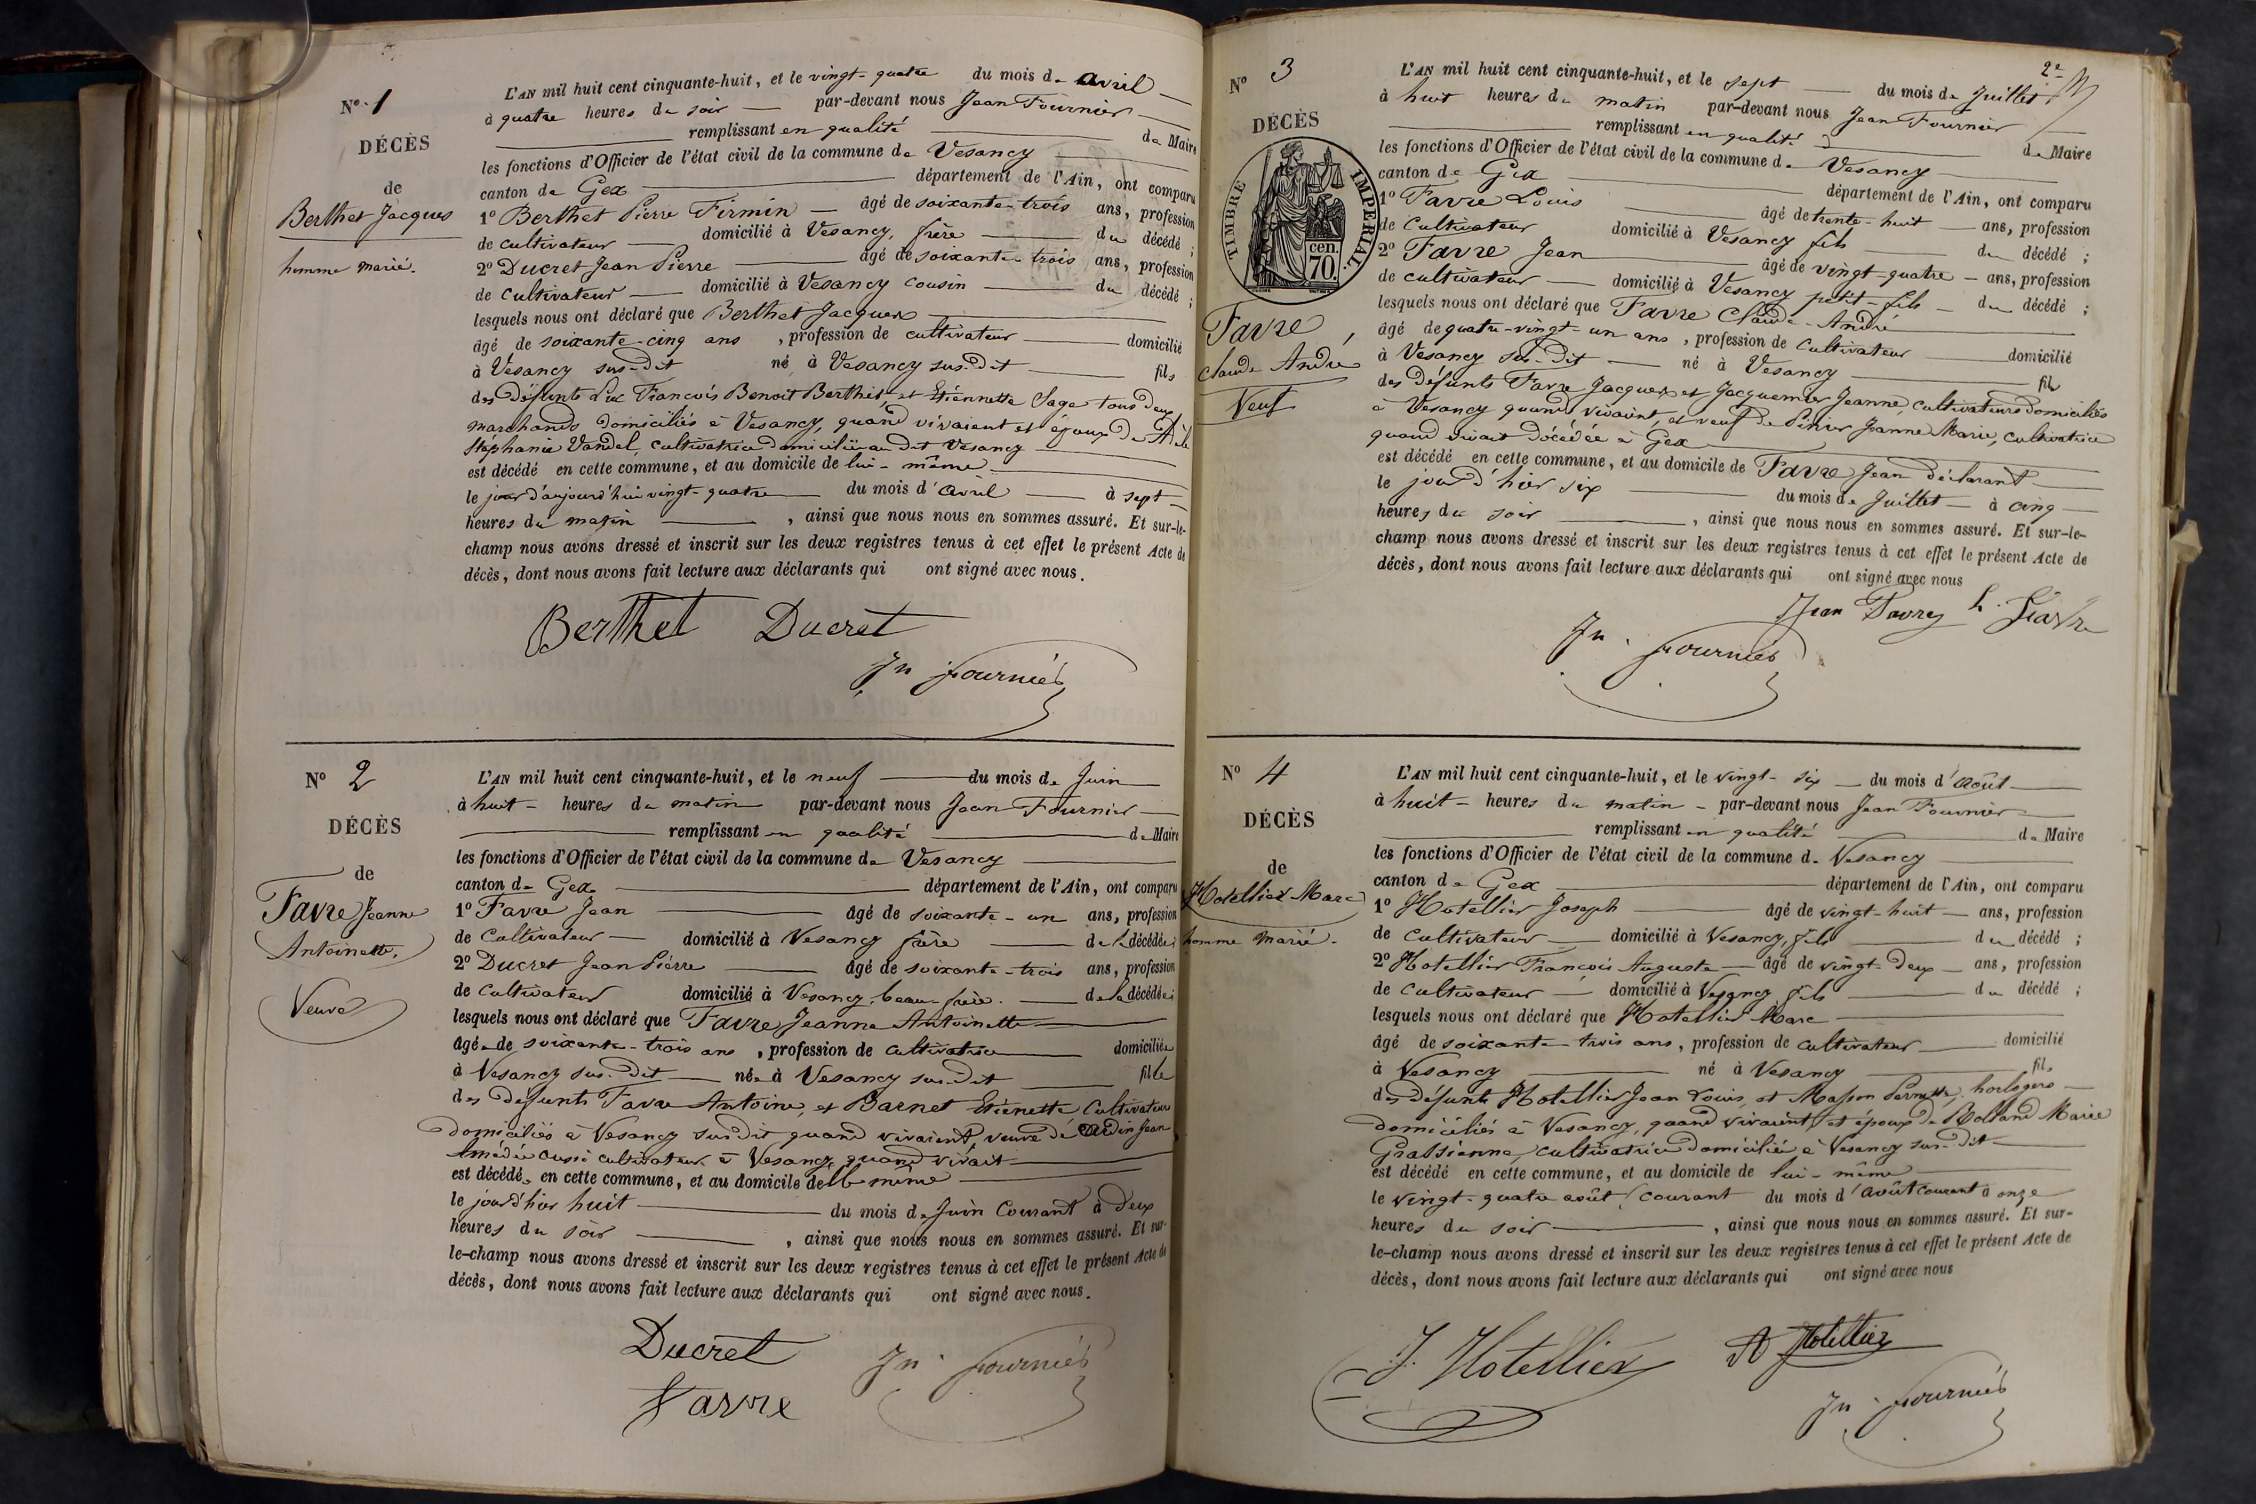 N° 1
DÉCÈS
de
Berthet Jacques
homme marié.
L'AN mil huit cent cinquante-huit, et le vingt-quatre du mois de avril
à quatre heures du soir par-devant nous Jean Fournier
remplissant en qualité de Maire
les fonctions d'Officier de l'état civil de la commune de Vesancy
canton de Gex département de l'Ain, ont comparu
1° Berthet Pierre Firmin âgé de soixante-trois ans, profession
de cultivateur domicilié à Vesancy, frère du décédé ;
2° Ducret Jean Pierre âgé de soixante-trois ans, profession
de cultivateur domicilié à Vesancy cousin du décédé ;
lesquels nous ont déclaré que Berthet Jacques
âgé de soixante-cinq ans, profession de cultivateur domicilié
à Vesancy sus-dit né à Vesancy sus-dit fils
des défunts Luc François Benoit Berthet, et Etiennette Sage tous deux
marchands domiciliés à Vesancy, quand vivaient et époux de Adèle
Stéphanie Vandel, cultivatrice domiciliée au dit Vesancy
est décédé en cette commune, et au domicile de lui-même
le jour d'aujourd'hui vingt-quatre du mois d'avril à sept
heures du matin, ainsi que nous nous en sommes assuré. Et sur-le-
champ nous avons dressé et inscrit sur les deux registres tenus à cet effet le présent Acte de
décès, dont nous avons fait lecture aux déclarants qui ont signé avec nous.
Berthet Ducret
Jn Fournier
N° 2
DÉCÈS
de
Favre Jeanne
Antoinette.
Veuve
L'AN mil huit cent cinquante-huit, et le neuf du mois de Juin
à huit heures du matin par-devant nous Jean Fournier
remplissant en qualité de Maire
les fonctions d'Officier de l'état civil de la commune de Vesancy
canton de Gex département de l'Ain, ont comparu
1° Favre Jean âgé de soixante-un ans, profession
de cultivateur domicilié à Vesancy frère de la décédée ;
2° Ducret Jean Pierre âgé de soixante-trois ans, profession
de cultivateur domicilié à Vesancy, beau-frère. de la décédée ;
lesquels nous ont déclaré que Favre Jeanne Antoinette
âgée de soixante-trois ans, profession de cultivatrice domiciliée
à Vesancy sus-dit née à Vesancy sus-dit fille
des défunts Favre Antoine, et Barnet Etienette Cultivateurs
domiciliés à Vesancy susdit quand vivaient, veuve de Jean
Amédée aussi cultivateur à Vesancy quand vivait
est décédée en cette commune, et au domicile de elle même
le jour d'hier huit du mois de Juin Courant à deux
heures du soir, ainsi que nous nous en sommes assuré. Et sur-
le-champ nous avons dressé et inscrit sur les deux registres tenus à cet effet le présent Acte de
décès, dont nous avons fait lecture aux déclarants qui ont signé avec nous.
Ducret
Favre
Jn. Fournier
2e
N° 3
DÉCÈS
TIMBRE IMPERIAL.
cen. 70.
Favre
Claude André
Veuf
L'AN mil huit cent cinquante-huit, et le sept du mois de Juillet
à huit heures du matin par-devant nous Jean Fournier
remplissant en qualité de Maire
les fonctions d'Officier de l'état civil de la commune de Vesancy
canton de Gex département de l'Ain, ont comparu
1° Favre Louis âgé de trente-huit ans, profession
de cultivateur domicilié à Vesancy fils du décédé ;
2° Favre Jean âgé de vingt-quatre ans, profession
de cultivateur domicilié à Vesancy petit-fils du décédé ;
lesquels nous ont déclaré que Favre Claude-André
âgé de quatre-vingt-un ans, profession de cultivateur domicilié
à Vesancy sus-dit né à Vesancy fils
des défunts Favre Jacques et Jacquemier Jeanne, cultivateurs domiciliés
à Vesancy quand vivaient, et veuf de Jeanne Marie, cultivatrice
quand vivait décédée à Gex
est décédé en cette commune, et au domicile de Favre Jean déclarant
le jour d'hier six du mois de Juillet à cinq
heures du soir, ainsi que nous nous en sommes assuré. Et sur-le-
champ nous avons dressé et inscrit sur les deux registres tenus à cet effet le présent Acte de
décès, dont nous avons fait lecture aux déclarants qui ont signé avec nous
Jean Favre L. Favre
Jn. Fournier
N° 4
DÉCÈS
de
Hotellier Marc
homme marié.
L'AN mil huit cent cinquante-huit, et le vingt-six du mois d'août
à huit heures du matin par-devant nous Jean Fournier
remplissant en qualité de Maire
les fonctions d'Officier de l'état civil de la commune de Vesancy
canton de Gex département de l'Ain, ont comparu
1° Hotellier Joseph âgé de vingt-huit ans, profession
de cultivateur domicilié à Vesancy, fils du décédé ;
2° Hotellier François Auguste âgé de vingt-deux ans, profession
de cultivateur domicilié à Vesancy fils du décédé ;
lesquels nous ont déclaré que Hotellier Marc
âgé de soixante-trois ans, profession de cultivateur domicilié
à Vesancy né à Vesancy fils
des défunts Hotellier Jean Louis, et Masson Pernette, horlogers
domiciliés à Vesancy, quand vivaient, et époux de Rolland Marie
Grassienne, cultivatrice domiciliée à Vesancy sus-dit
est décédé en cette commune, et au domicile de lui-même
le vingt-quatre août courant du mois d'août courant à onze
heures du soir, ainsi que nous nous en sommes assuré. Et sur-
le-champ nous avons dressé et inscrit sur les deux registres tenus à cet effet le présent Acte de
décès, dont nous avons fait lecture aux déclarants qui ont signé avec nous
J. Hotellier A Hotellier
Jn. Fournier